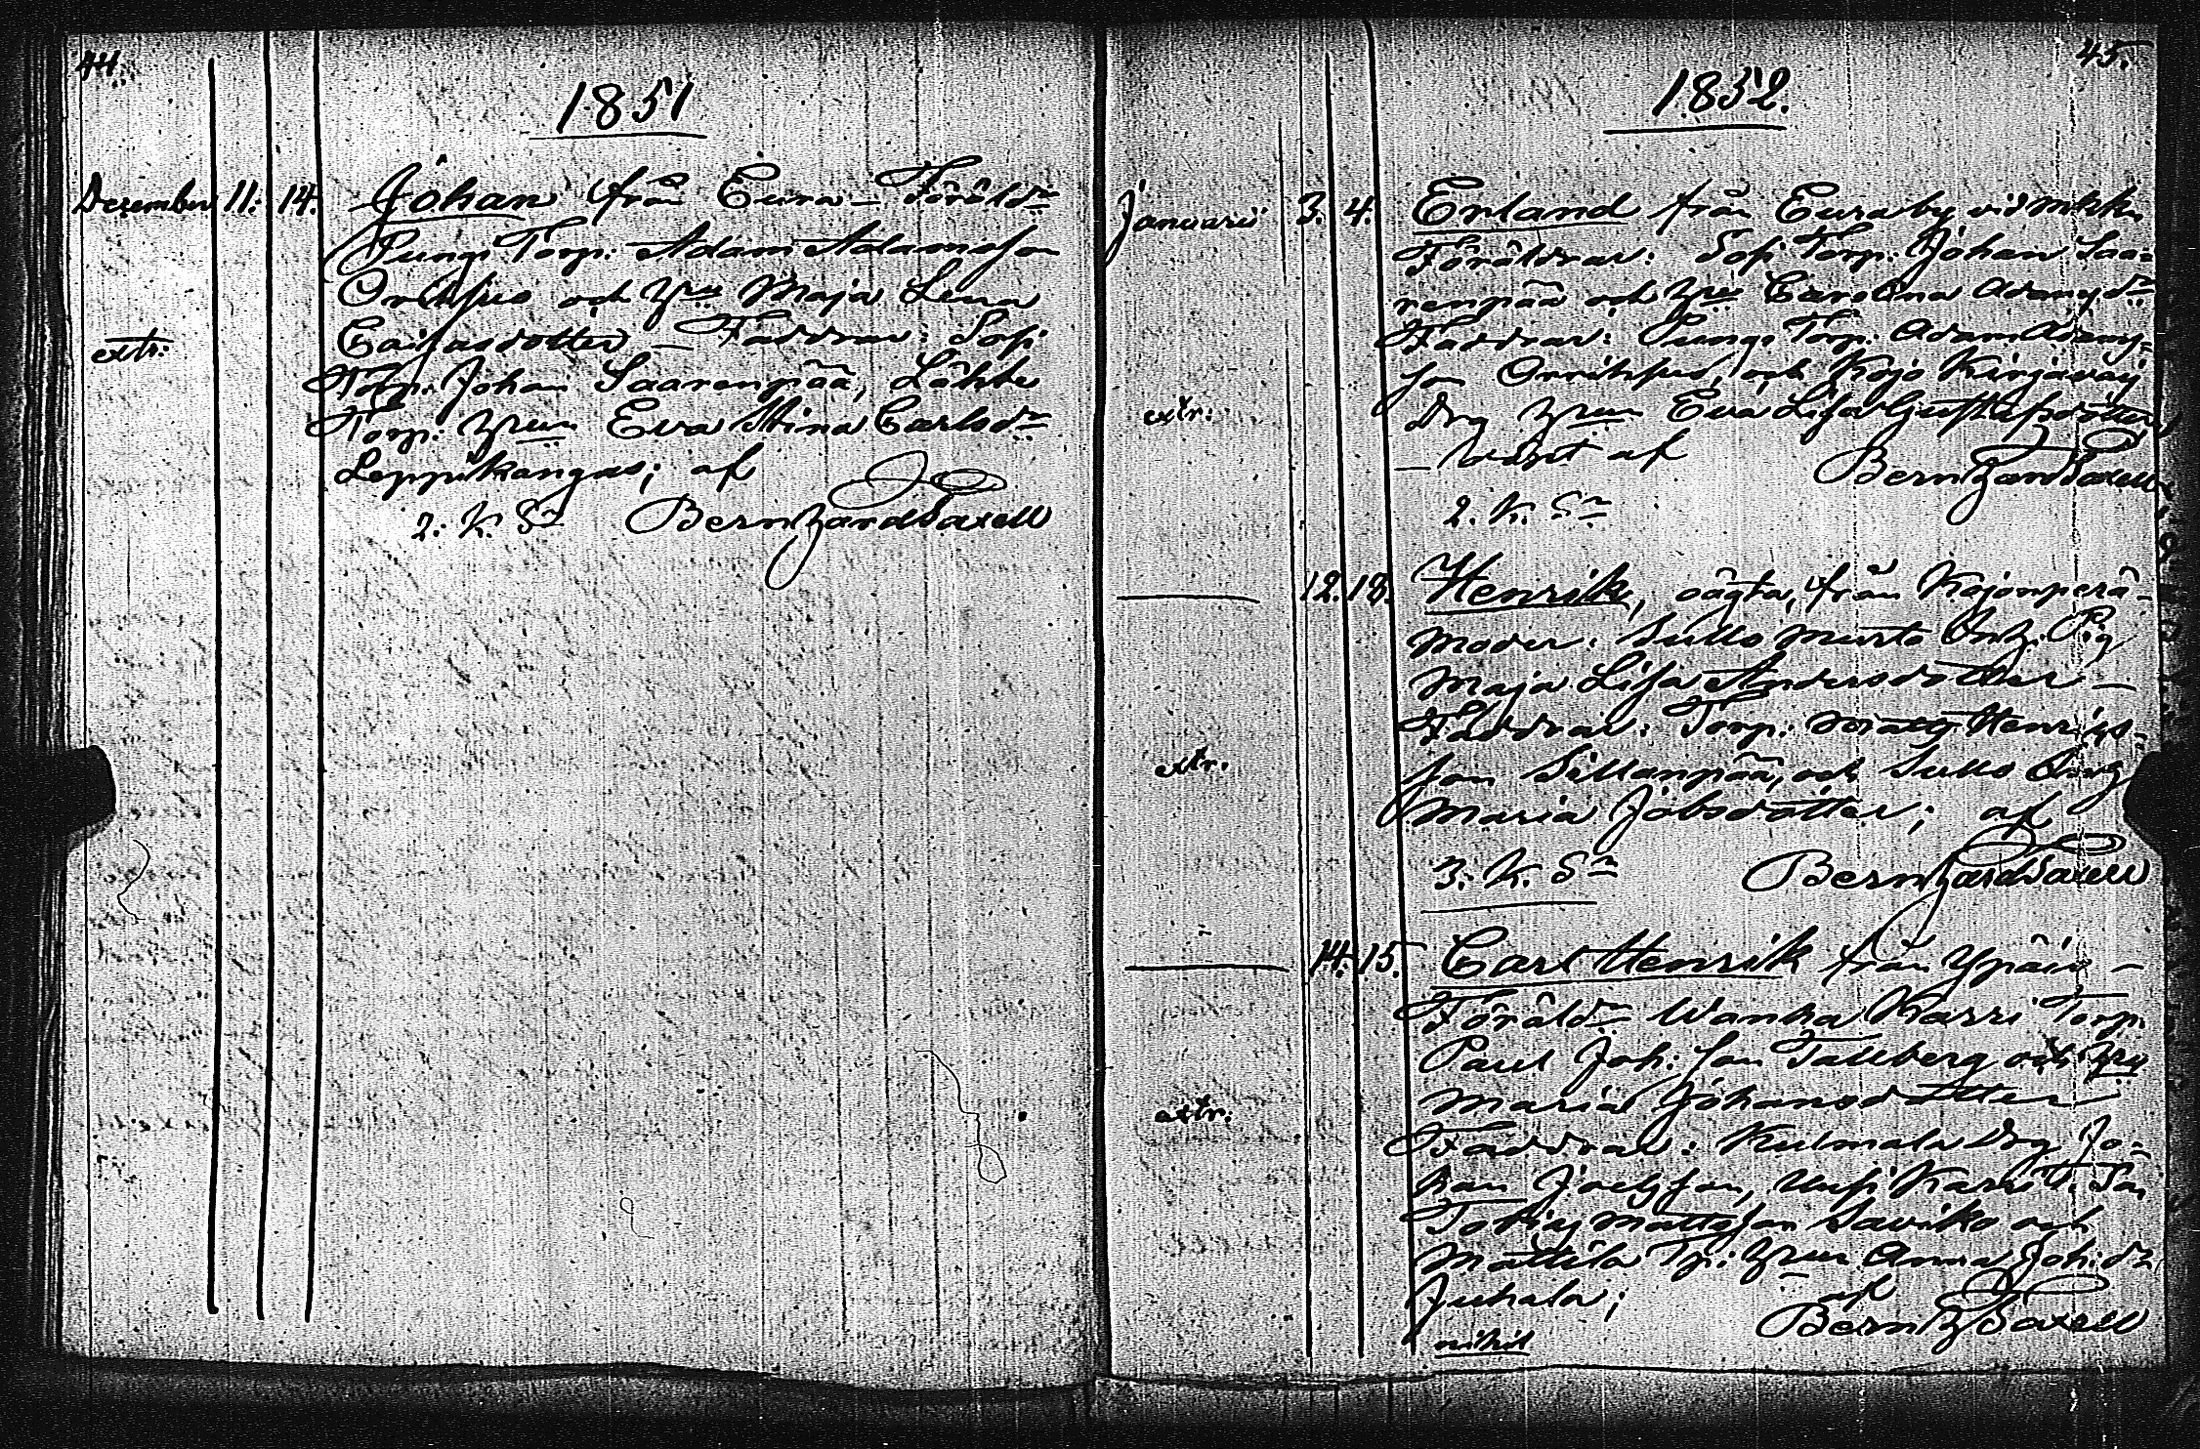 44.
1851
Dezember 11. 14. Johan från Eura – Föräldr
Pungs Torp. Adam Adamsson
Orrihpes och Hru Maja Lena
Caisasdotter – Faddrar: Sopi
extr.
Torp. Johan Saarenpää, Lähte
Torp. Hrun Eva Stina Carlsdr
Leppikangas; af
2. K. Sn Bernhard Saxell
45.
1852.
Januarii 3. 4. Erland från Euraby vid
Föräldrar: Sopi Torp. Johan Saa-
renpää och Hru Carolina Adamsdr
Faddrar: Pungs Torp. Adam Adams-
son Orrihpes, och Kojo
extr.
Drg Hrun Eva Lisa Gustafsdotter
– af Bernhard Saxell
2. K. Sn
12. 18. Henrik, oägta, från Kojonperä –
Moder: Sullo Inh. Pig
Maja Lisa Andersdotter –
Faddrar: Torp. Henrics-
son Sillanpää, och Sullo
extr.
Maria Jobsdotter; af
3. K. Sn Bernhard Saxell
14. 15. Carl Henrik från Ypäis –
Föräldr Wanha Karri Torp.
Paul Joh: son Tallberg och Hru
Maria Johansdotter
extr.
Faddrar: Kulmala Drg Jo-
han Joels son, Uusi Karri T. Son
Tobias Matts son Saviko och
Mattila Tp: Hrun Anna Joh:dr
Juhala; af
Bernh Saxell
nihil